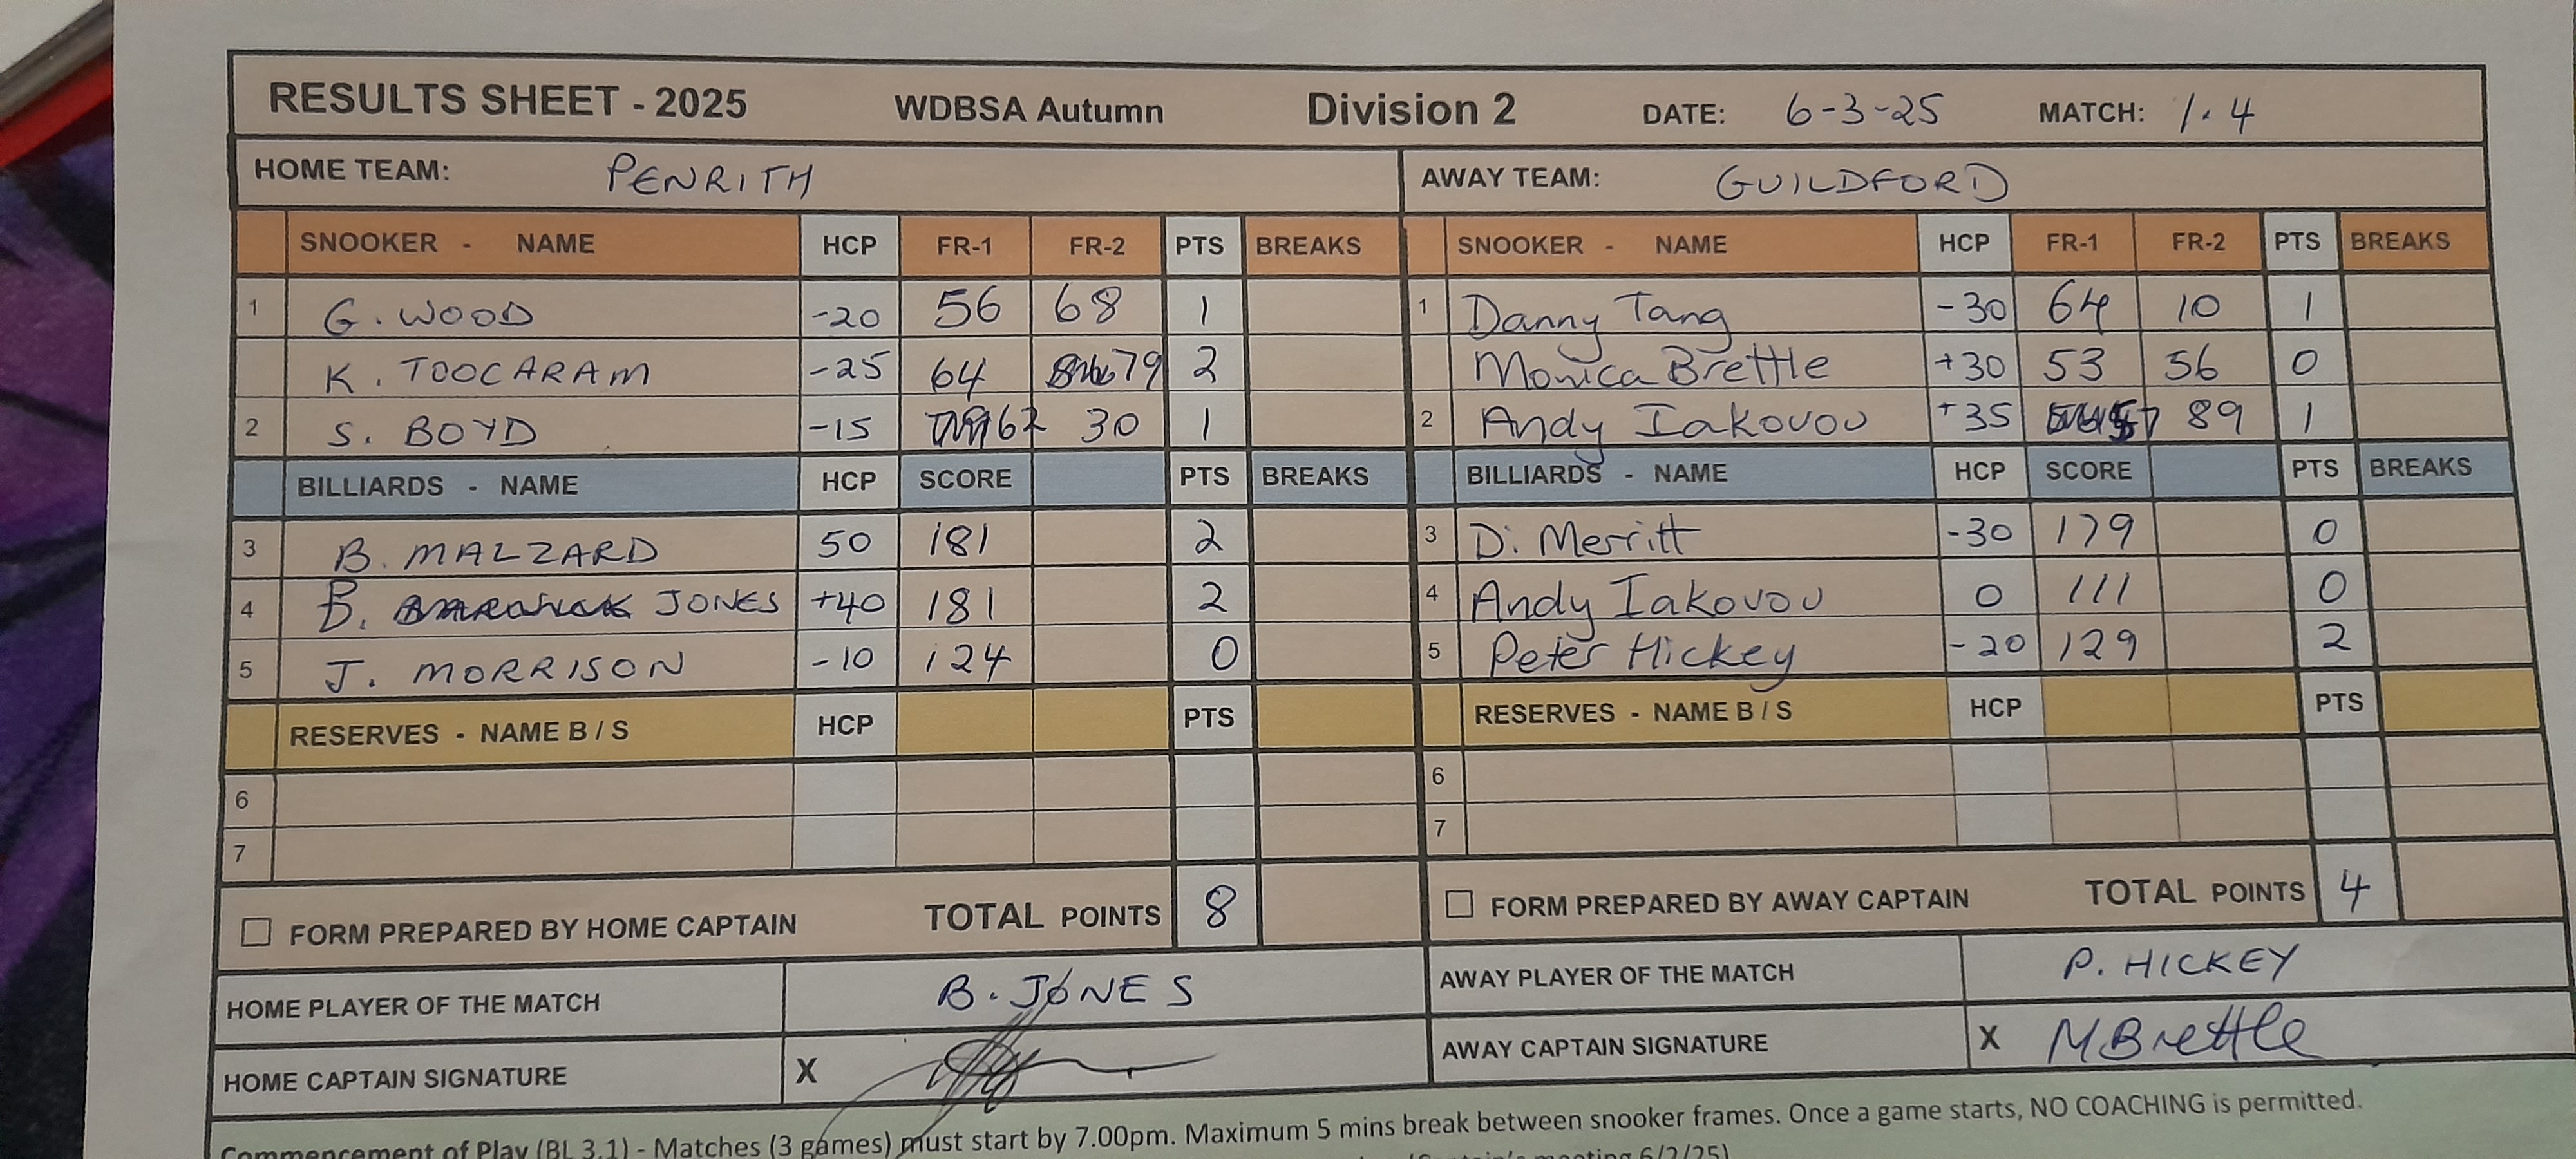 RESULTS SHEET - 2025 WDBSA Autumn Division 2 DATE: 6-3-25 MATCH: 1.4
HOME TEAM: PENRITH AWAY TEAM: GUILDFORD
SNOOKER - NAME HCP FR-1 FR-2 PTS BREAKS SNOOKER - NAME HCP FR-1 FR-2 PTS BREAKS
1 G. WOOD -20 56 68 1 1 Danny Tang -30 64 10 1
K. TOOCARAM -25 64 79 2 Monica Brettle +30 53 56 0
2 S. BOYD -15 62 30 1 2 Andy Iakovou +35 57 89 1
BILLIARDS - NAME HCP SCORE PTS BREAKS BILLIARDS - NAME HCP SCORE PTS BREAKS
3 B. MALZARD 50 181 2 3 D. Merritt -30 179 0
4 B. JONES +40 181 2 4 Andy Iakovou 0 111 0
5 J. MORRISON -10 124 0 5 Peter Hickey -20 129 2
RESERVES - NAME B / S HCP PTS RESERVES - NAME B / S HCP PTS
6 6
7 7
FORM PREPARED BY HOME CAPTAIN TOTAL POINTS 8 FORM PREPARED BY AWAY CAPTAIN TOTAL POINTS 4
HOME PLAYER OF THE MATCH B. JONES AWAY PLAYER OF THE MATCH P. HICKEY
HOME CAPTAIN SIGNATURE X AWAY CAPTAIN SIGNATURE X M Brettle
Commencement of Play (BL 3.1) - Matches (3 games) must start by 7.00pm. Maximum 5 mins break between snooker frames. Once a game starts, NO COACHING is permitted.
(Captain's meeting 6/2/25)